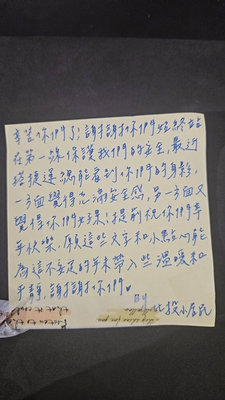 辛苦你們了！謝謝你們始終站
在第一線保護我們的安全，最近
搭捷運總能看到你們的身影，
一方面覺得心滿安全感，另一方面又
覺得你們好辛苦！提前祝你們幸
年快樂，願這些文字和小點心能
為這不安定的年末帶入些溫暖和
平靜，謝謝你們。
北投小居民